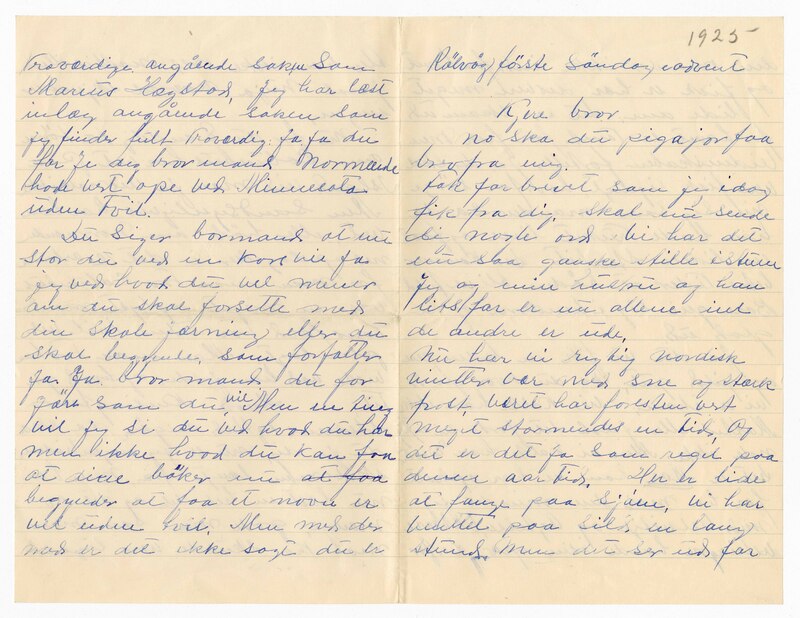 Troværdige angående saken som
Marius Hægstad, Jeg har læst
inlæg angående saken som
jeg finder fult Troværdig. Ja Ja du
far je dig bror mand Normænde
hode vert ope ved Minnesota
uden Tvil.
Du siger bormand at nu
stor du ved en korsvei ja
jeg ved hvod du vel mener
om du skal forsette med
din skole jærning eller du
skal begynde som forfatter
ja Ja bror mand du for
gjøre som du vil Men en ting
vil jeg si du ved hvod du har
men ikke hvod du kan faa
at dine bøker nu at faa
begynder at faa et navn er
vel uden Tvil, Men med der
med er det ikke sagt du er
1925
Rölvåg förste Söndag i advent
Kjere bror
no ska du piga jor faa
brev fra mig.
Tak for brevet som je idag
fik fra dig, skal nu sende
dig nogle ord Vi har det
nu saa ganske stille i stuen
Jeg og min hustru og han
litsfar er nu allene ind
de andre er ude,
Nu har vi rigtig nordisk
vintter vær med sne og stærk
frost, været har foresten vert
meget stormendes en tid, Og
det er det jo som regel paa
denne aars tid, Her er lide
at fange paa Sjøen, vi har
venttet paa sild en lang
stund, men det ser ud for